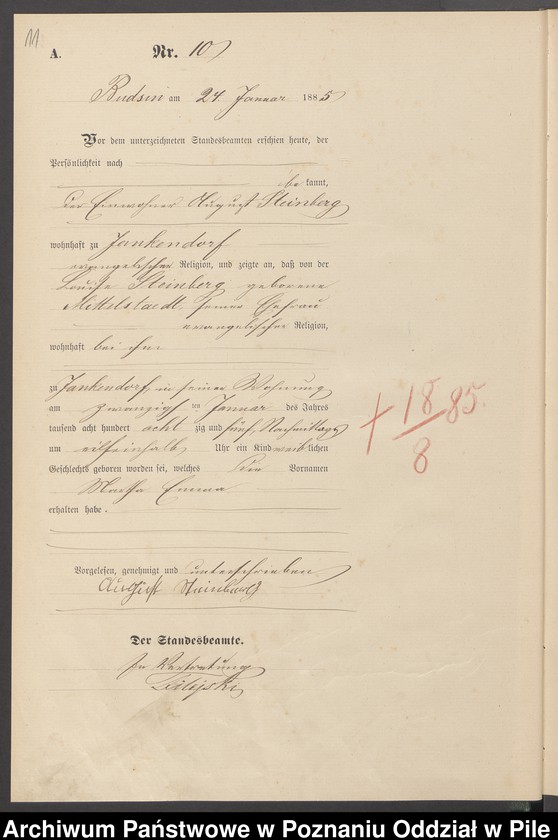 11
A.
Nr. 10
Budsin am 24 Januar 1885
Vor dem unterzeichneten Standesbeamten erschien heute, der
Persönlichkeit nach
be kannt,
der Einwohner August Steinberg
wohnhaft zu Jankendorf
evangelischer Religion, und zeigte an, daß von der
Louise Steinberg geborene
Mittelstaedt, seiner Ehefrau
evangelischer Religion,
wohnhaft bei ihm
zu Jankendorf, in seiner Wohnung
am zwanzigsten Januar des Jahres
tausend acht hundert acht zig und fünf, Nachmittags
um eilfeinhalb Uhr ein Kind weib lichen
Geschlechts geboren worden sei, welches den Vornamen
Martha Emma
erhalten habe.
+ 18/8 85.
Vorgelesen, genehmigt und unterschrieben
August Steinberg
Der Standesbeamte.
In Vertretung
Archiwum Państwowe w Poznaniu Oddział w Pile